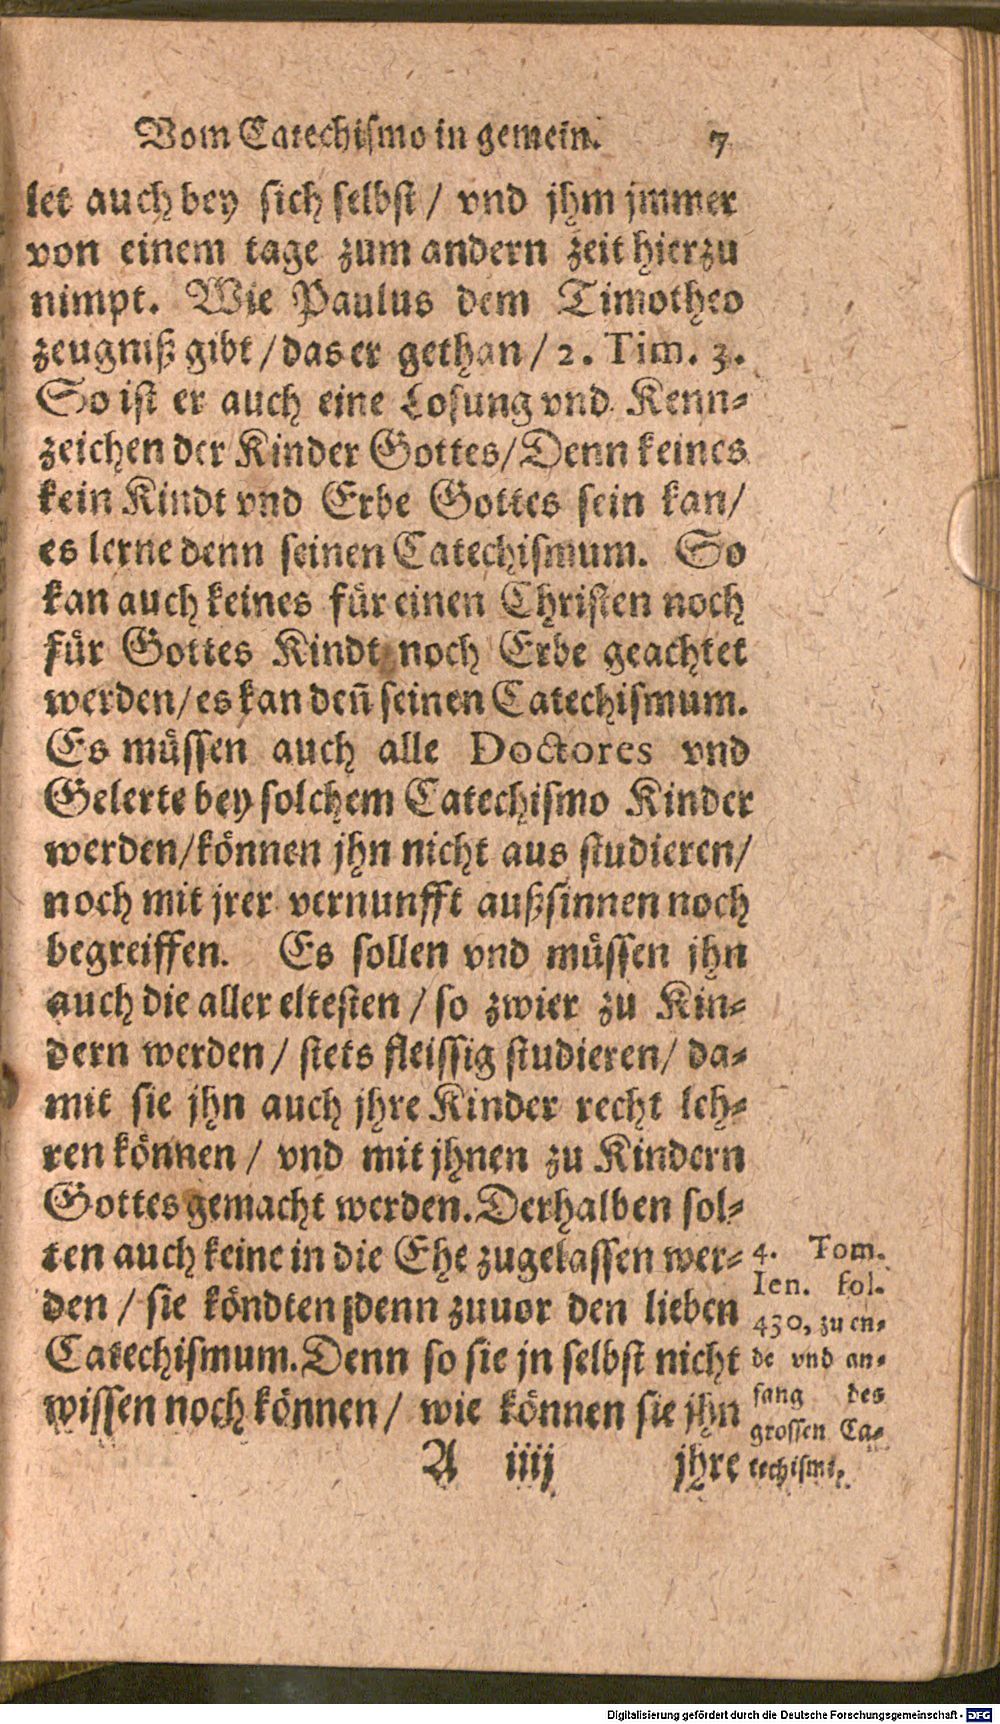 Vom Catechismo in gemein. 7
let auch bey sich selbst / vnd jhm jmmer
von einem tage zum andern zeit hierzu
nimpt. Wie Paulus dem Timotheo
zeugniß gibt / das er gethan / 2. Tim. 3.
So ist er auch eine Losung vnd Kenn-
zeichen der Kinder Gottes / Denn keines
kein Kindt vnd Erbe Gottes sein kan /
es lerne denn seinen Catechismum. So
kan auch keines für einen Christen noch
für Gottes Kindt noch Erbe geachtet
werden / es kan deñ seinen Catechismum.
Es müssen auch alle Doctores vnd
Gelerte bey solchem Catechismo Kinder
werden / können jhn nicht aus studieren /
noch mit jrer vernunfft außsinnen noch
begreiffen. Es sollen vnd müssen jhn
auch die aller eltesten / so zwier zu Kin-
dern werden / stets fleissig studieren / da-
mit sie jhn auch jhre Kinder recht leh-
ren können / vnd mit jhnen zu Kindern
Gottes gemacht werden. Derhalben sol-
ten auch keine in die Ehe zugelassen wer-
den / sie köndten denn zuuor den lieben
Catechismum. Denn so sie jn selbst nicht
wissen noch können / wie können sie jhn
A iiij jhre
4. Tom.
Ien. fol.
430, zu en-
de vnd an-
fang des
grossen Ca-
techismi.
Digitalisierung gefördert durch die Deutsche Forschungsgemeinschaft - DFG